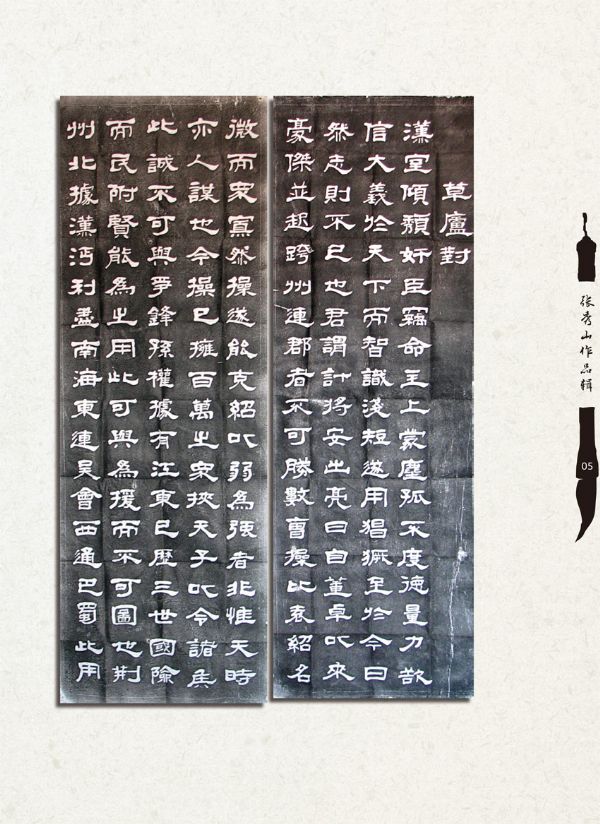 草廬對
漢室傾頹奸臣竊命主上蒙塵孤不度德量力欲
信大義於天下而智識淺短遂用猖獗至於今日
然志則不已也君謂計將安出亮曰自董卓以來
豪傑並起跨州連郡者不可勝數曹操比袁紹名
微而眾寡然操遂能克紹以弱為強者非惟天時
亦人謀也今操已擁百萬之眾挾天子以令諸侯
此誠不可與爭鋒孫權據有江東已歷三世國險
而民附賢能為之用此可與為援而不可圖也荊
州北據漢沔利盡南海東連吳會西通巴蜀此用
张秀山作品辑
05